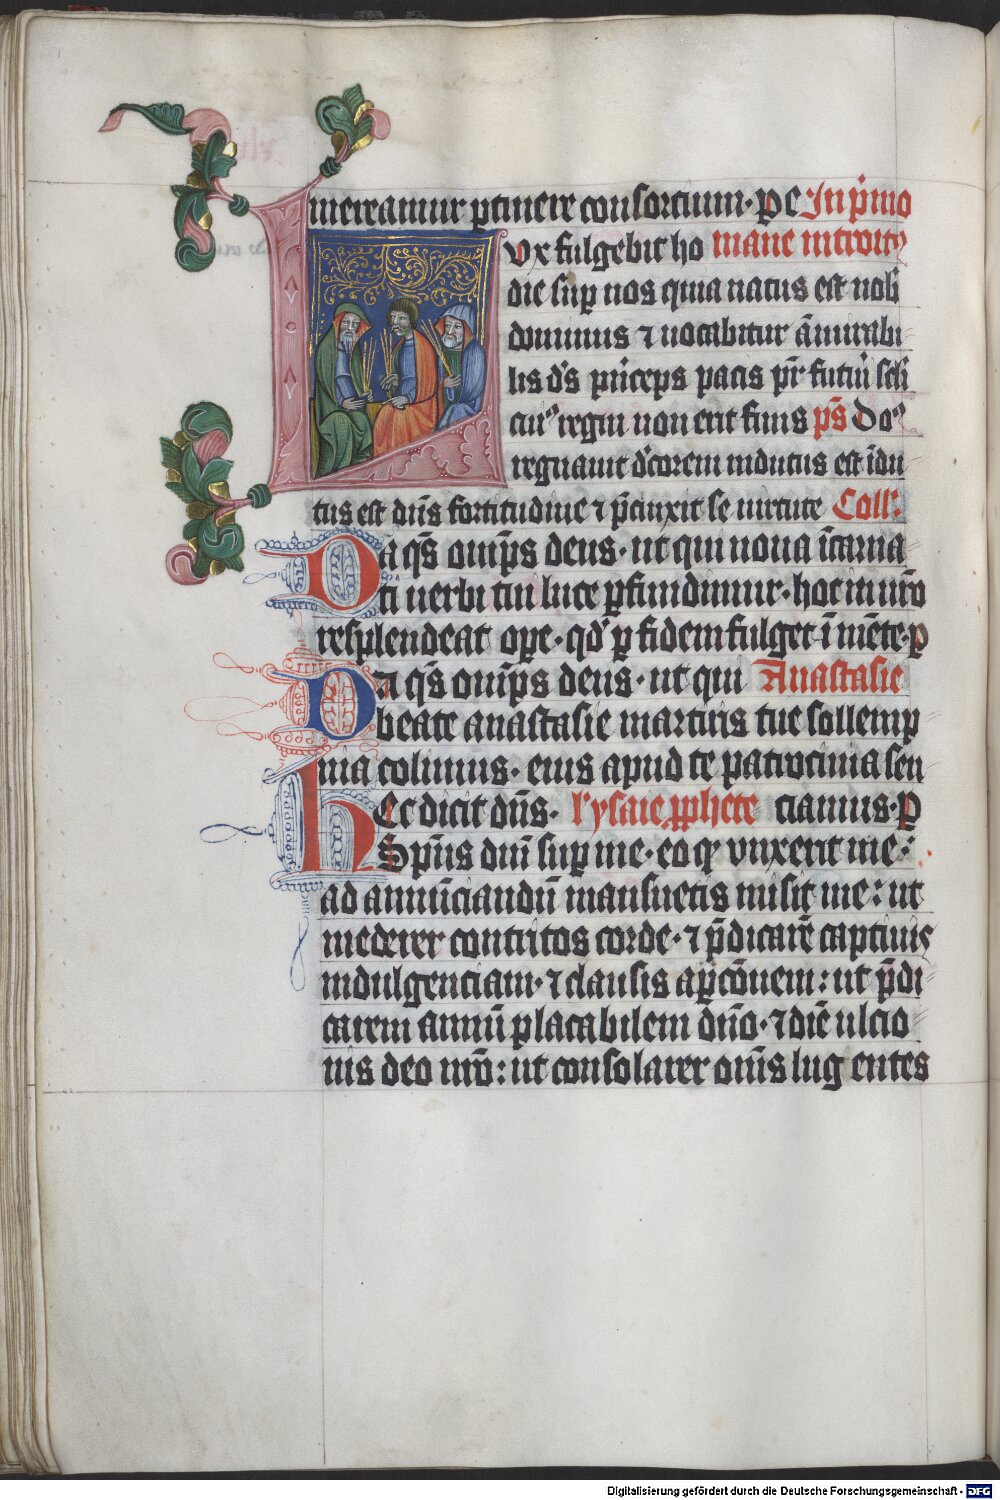 mereamur ꝑtinere consorcium · ꝑ e In p̄mo
Lvx fulgebit ho mane introitꝰ
die suꝑ nos quia natus est nob̄
dominus ⁊ uocabitur ām̄irabi
lis d̄s princeps pacis pr̄ futuri sc̄li
cuiꝰ regni non erit finis p̄s Dn̄s
regnauit d̄corem indutus est īdu
tus est dn̄s fortitudine ⁊ p̄cinxit se uirtute Coll̄
Da qs̄ omīps deus · ut qui noua īcarna
ti uerbi tui luce ꝑfundimur · hoc in nr̄o
resplendeat oꝑe · qd̄ ꝑ fidem fulget ī mēte · ꝑ
Da qs̄ omīps deus · ut qui Anastasie
beate anastasie martiris tue sollemp
nia colimus · eius apud te patrocinia sen
hEc dicit dn̄s · l' ysaie ꝓphete ciamus · ꝑ
Spūs dn̄i suꝑ me · eo qꝫ vnxerit me ·
ad annūciandū mansuetis misit me : ut
mederer contritos corde · ⁊ p̄dicarē captiuis
indulgenciam · ⁊ clausis apercōnem : ut p̄di
carem annū placabilem dn̄o · ⁊ diē ulcio
nis deo nr̄o : ut consolarer om̄s lugentes
Digitalisierung gefördert durch die Deutsche Forschungsgemeinschaft - DFG